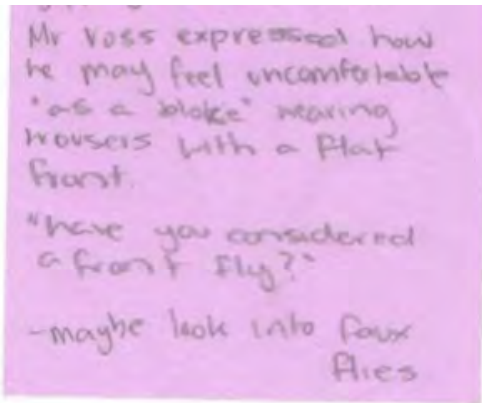 Mr Voss expressed how
he may feel uncomfortable
"as a bloke" wearing
trousers with a flat
front.
"have you considered
a front fly?"
-maybe look into faux
flies